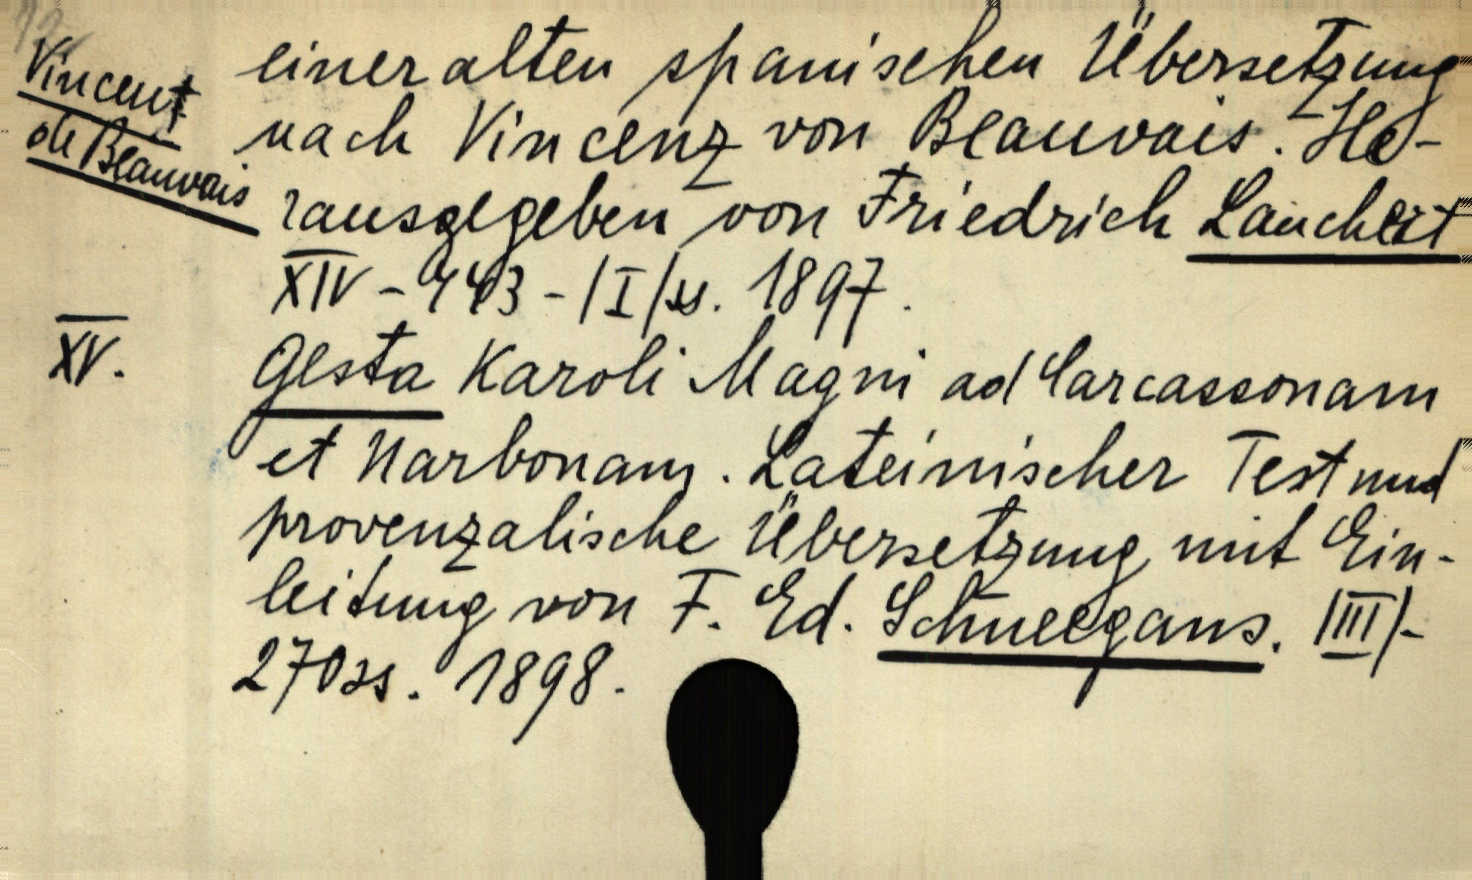 Vincent
de Beauvais
einer alten spanischen Übersetzung
nach Vincenz von Beauvais. He-
rausgegeben von Friedrich Lauchert
XIV - 443 - /I/ ss. 1897.
XV. Gesta Karoli Magni ad Carcassonam
et Narbonam. Lateinischer Test und
provenzalische Übersetzung mit Ein-
leitung von F. Ed. Schneegans. /III/-
270 ss. 1898.